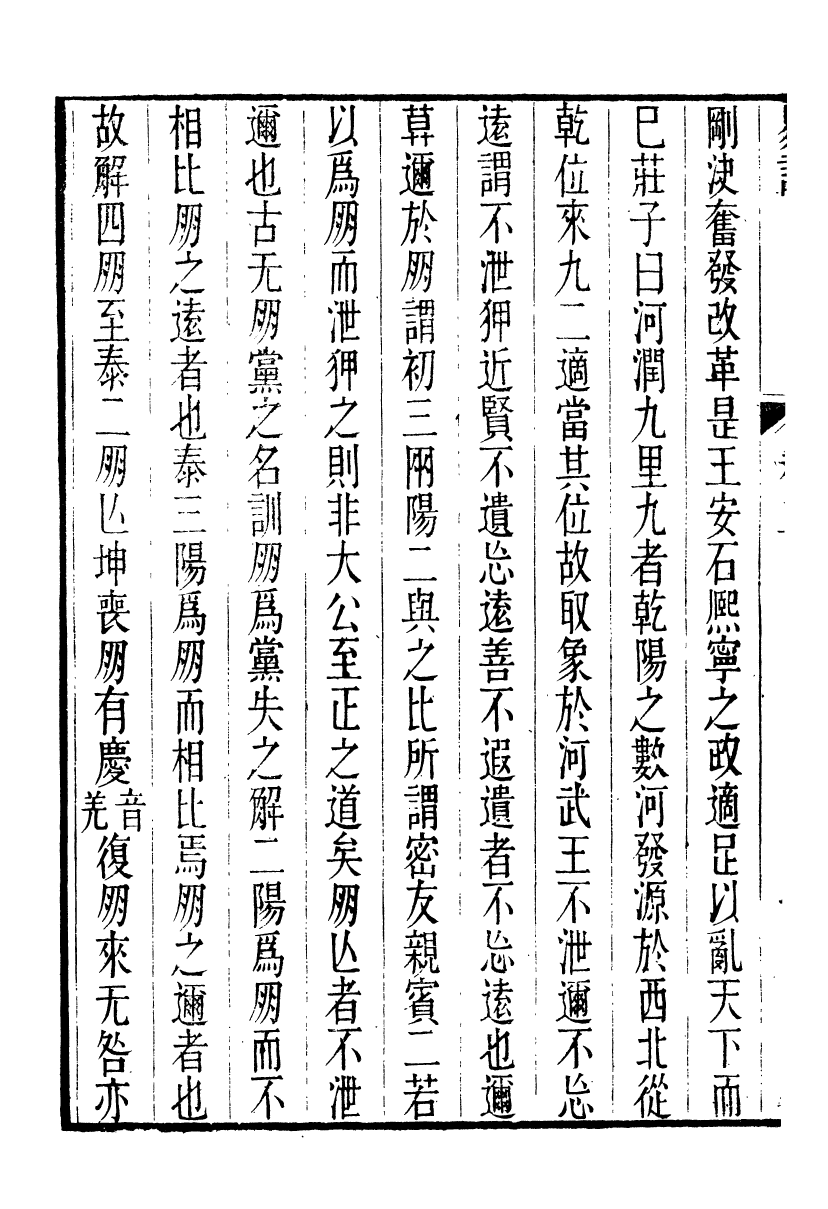 剛決奮發改革是王安石熈寧之政適足以亂天下而
巳莊子曰河潤九里九者乾陽之數河發源於西北從
乾位來九二適當其位故取象於河武王不泄邇不忘
遠謂不泄狎近賢不遺忘遠善不遐遺者不忘遠也邇
莫邇於朋謂初三兩陽二與之比所謂密友親賓二若
以爲朋而泄狎之則非大公至正之道矣朋亾者不泄
邇也古无朋黨之名訓朋爲黨失之解二陽爲朋而不
相比朋之遠者也泰三陽爲朋而相比焉朋之邇者也
故解四朋至泰二朋亾坤喪朋有慶音羌復朋來无咎亦